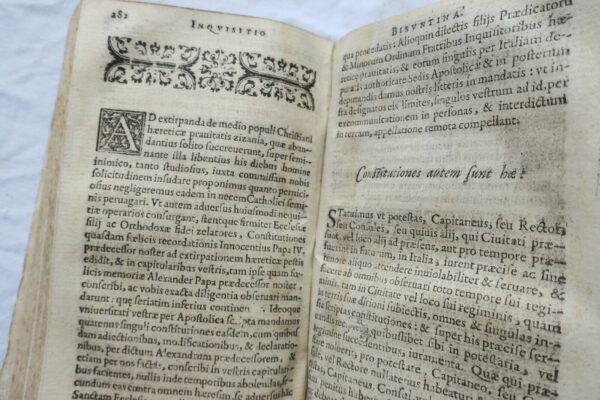 282
INQVISITIO
AD extirpanda de medio populi Christiani
hæreticæ prauitatis zizania, quæ abun
dantius solito succreuerunt, super semi-
nante illa libentius his diebus homine
inimico, tanto studiosius, iuxta commissam nobis
solicitudinem insudare proponimus quanto pernicio
sius negligeremus eadem in necem Catholici semi-
nis peruagari. Vt autem aduersus huiusmodi nequi-
tiæ operarios consurgant, stentque firmiter Ecclesiæ
filij ac Orthodoxæ fidei zelatores, Constitutiones
quasdam fœlicis recordationis Innocentius Papa IV.
prædecessor noster ad extirpationem hæreticæ pestis
edidit, & in capitularibus vestris, tam ipse quam fœ-
licis memoriæ Alexander Papa prædecessor noster,
conscribi, ac vobis exacta diligentia obseruari man-
darunt: que seriatim inferius continen Ideoque
vniuersitati vestræ per Apostolica mandamus
quatenus singuli constitutiones easdem, cum quibusdam
adiectionibus, modificationibus, & declaratio
nibus, per dictum Alexandrum prædecessorem, &
factis per nos, in vestris conscribi capitularibus
facientes, nullis inde temporibus abolendas,
cundum eas contra omnem hæresim, se
Sanctam Ecclesiam
BISVNTINA.
qua procedatis; Alioquin dilectis filijs Prædicatorum
& Minorum Ordinum Fratribus Inquisitoribus hæ-
reticæ prauitatis, & eorum singulis per Italiam de-
putatis authoritate Sedis Apostolicæ & in posterum
deputandis damus nostris litteris in mandatis: vt in-
fra designatos eis limites, singulos vestrum ad id, per
excommunicationem in personas, & interdictum
in terram, appellatione remota compellant.
Constitutiones autem sunt hæ.
STatuimus vt potestas, Capitaneus, seu Rector,
seu Consules, seu quiuis alij, qui Ciuitati præ-
sunt, vel loco alij ad præsens, aut pro tempore præ-
fuerint in futurum, in Italia, iurent præcise ac sine
timore aliquo, attendere inuiolabiliter & seruare, &
facere ab omnibus obseruari toto tempore sui regi-
minis, tam in Ciuitate vel loco sui regiminis, quam
in terris suæ ditioni subiectis, omnes & singulas in-
scriptas constitutiones: & super his præcise ser-
uandis, quibuslibet sibi in potestaria, vel
regimine succedentibus, iuramenta. Quæ qui præ-
stare noluerit, pro potestate, Capitaneo, Consule,
seu, vel Rectore nullatenus habeatur
potestas, Capitaneus, Consul